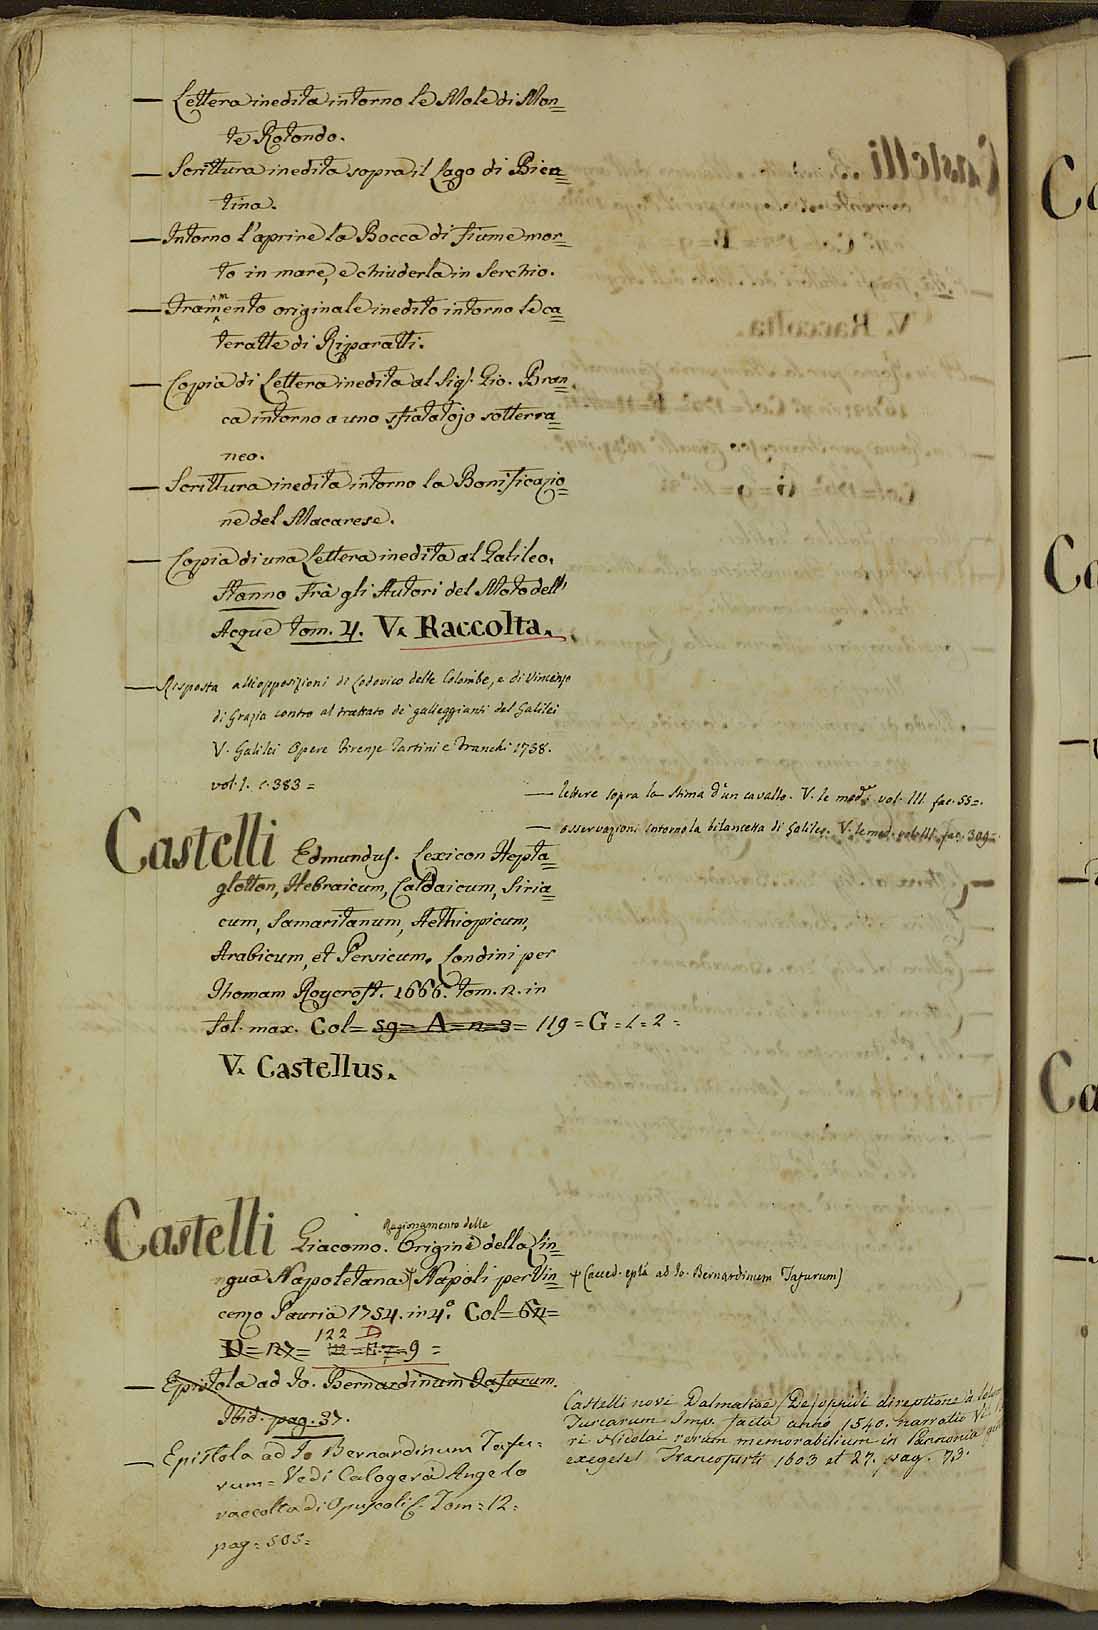 — Lettera inedita intorno le Mole di Mon=
te Rotondo.
— Scrittura inedita sopra il Lago di Bien=
tina.
— Intorno l'aprire la Bocca di fiume mor=
to in mare, e chiuderla in Serchio.
— Tramento originale inedito intorno le ca=
m
teratte di Ripparatti.
— Copia di Lettera inedita al Sig.r Gio. Bran=
ca intorno a uno sfiatatojo sotterra=
neo.
— Scrittura inedita intorno la Bonificazio=
ne del Macarese.
— Copia di una Lettera inedita al Galileo.
Stanno Frà gli Autori del Moto dell'
Acque tom. 4. V. Raccolta.
— Risposta all'opposizioni di Lodovico delle Colombe, e di Vincenzo
di Grazia contro al trattato de' galleggianti del Galilei
V. Galilei Opere Firenze Tartini e Franchi 1738.
vol. 1. c. 383 =
— lettere sopra la stima d'un cavallo. V. le med.e vol. III. fac. 55=.
— osservazioni intorno la bilancetta di Galileo. V. le med. vol. III. fac. 309=
Castelli Edmundus. Lexicon Hepta=
glotton, Hebraicum, Caldaicum, Siria=
cum, Samaritanum, Aethiopicum,
Arabicum, et Persicum. Londini per
Thomam Roycroft. 1666. tom. 2. in
fol. max. Col= 59= A= n= 3= 119= G= 1= 2=
V. Castellus.
Castelli Giacomo. Ragionamento delle Origine della Lin=
gua Napoletana. Napoli per Vin=
(acced. epla ad Io. Bernardinum Tafurum)
cenzo Pauria 1754. in 4.° Col= 64=
D= 27= 122 D 9 =
— Epistola ad Io. Bernardinum Tafurum.
Ibid. pag. 37.
— Epistola ad Io Bernardinum Tafu=
rum = Vedi Calogerà Angelo
raccolta di Opuscoli &. Tom= 12=
pag= 505=
Castelli novi Dalmatiae direptione à
Turcarum Imp. facta anno 1540. narratio
ri Nicolai rerum memorabilium in Pannonia
exegeses Francofurti 1603 et 27. pag. 73.
V. Raccolta.